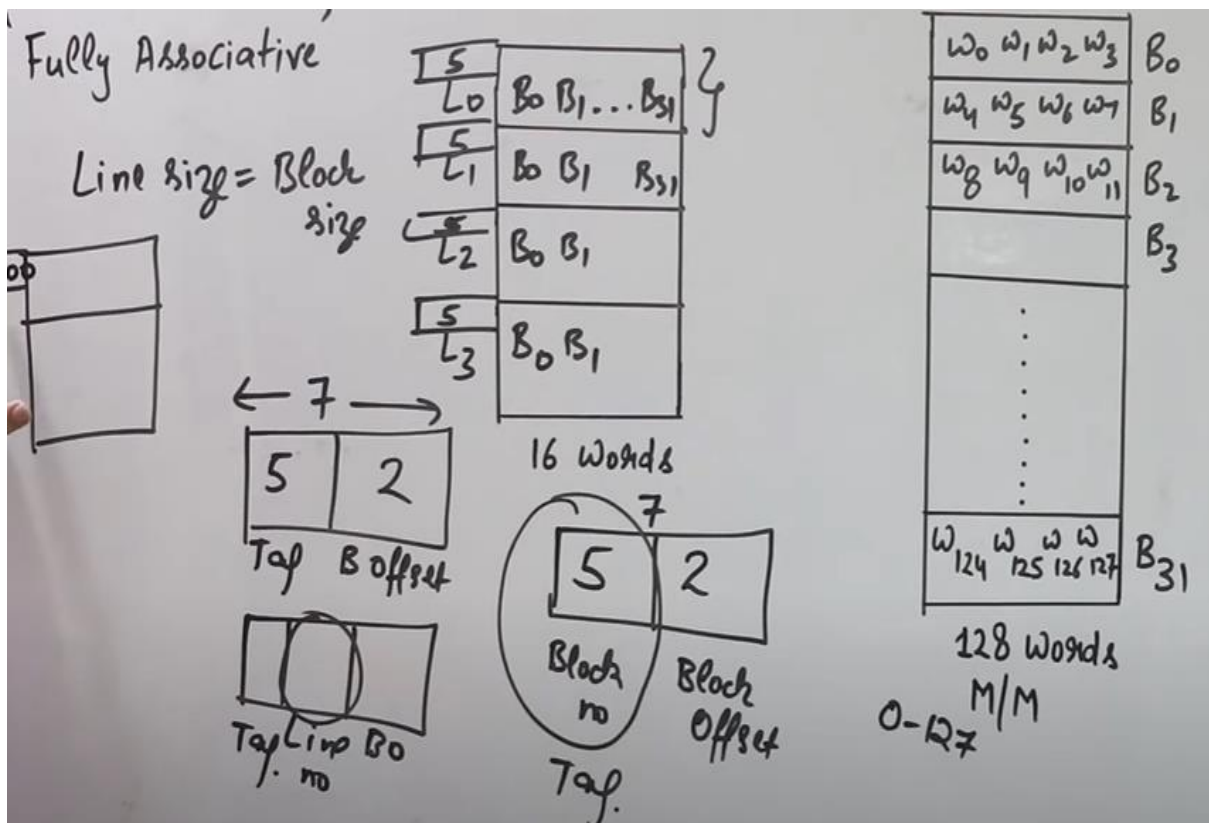 Fully Associative
Line size = Block
size
00
5
L0 B0 B1 ... B31
5
L1 B0 B1 B31
5
L2 B0 B1
5
L3 B0 B1
16 words
← 7 →
5 2
Tag B Offset
Tag. Line no BO
7
5 2
Block no Block Offset
Tag.
W0 W1 W2 W3 B0
W4 W5 W6 W7 B1
W8 W9 W10 W11 B2
B3
W124 W125 W126 W127 B31
128 words
M/M
0-127